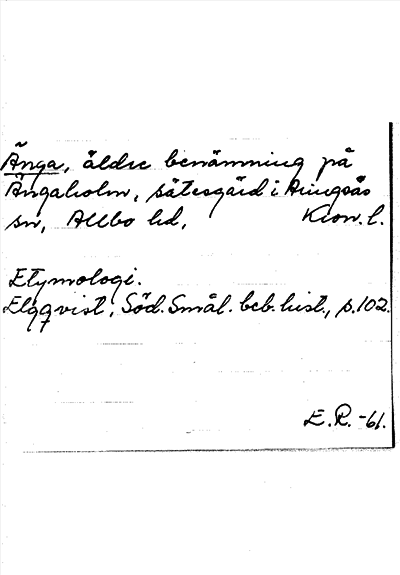 Änga, äldre benämning på
Ängaholm, sätesgård i Aringsås
sn, Allbo hd, Kron. l.
Etymologi.
Elgqvist, Söd. Smål. beb. hist., p. 102.
E. R. -61.